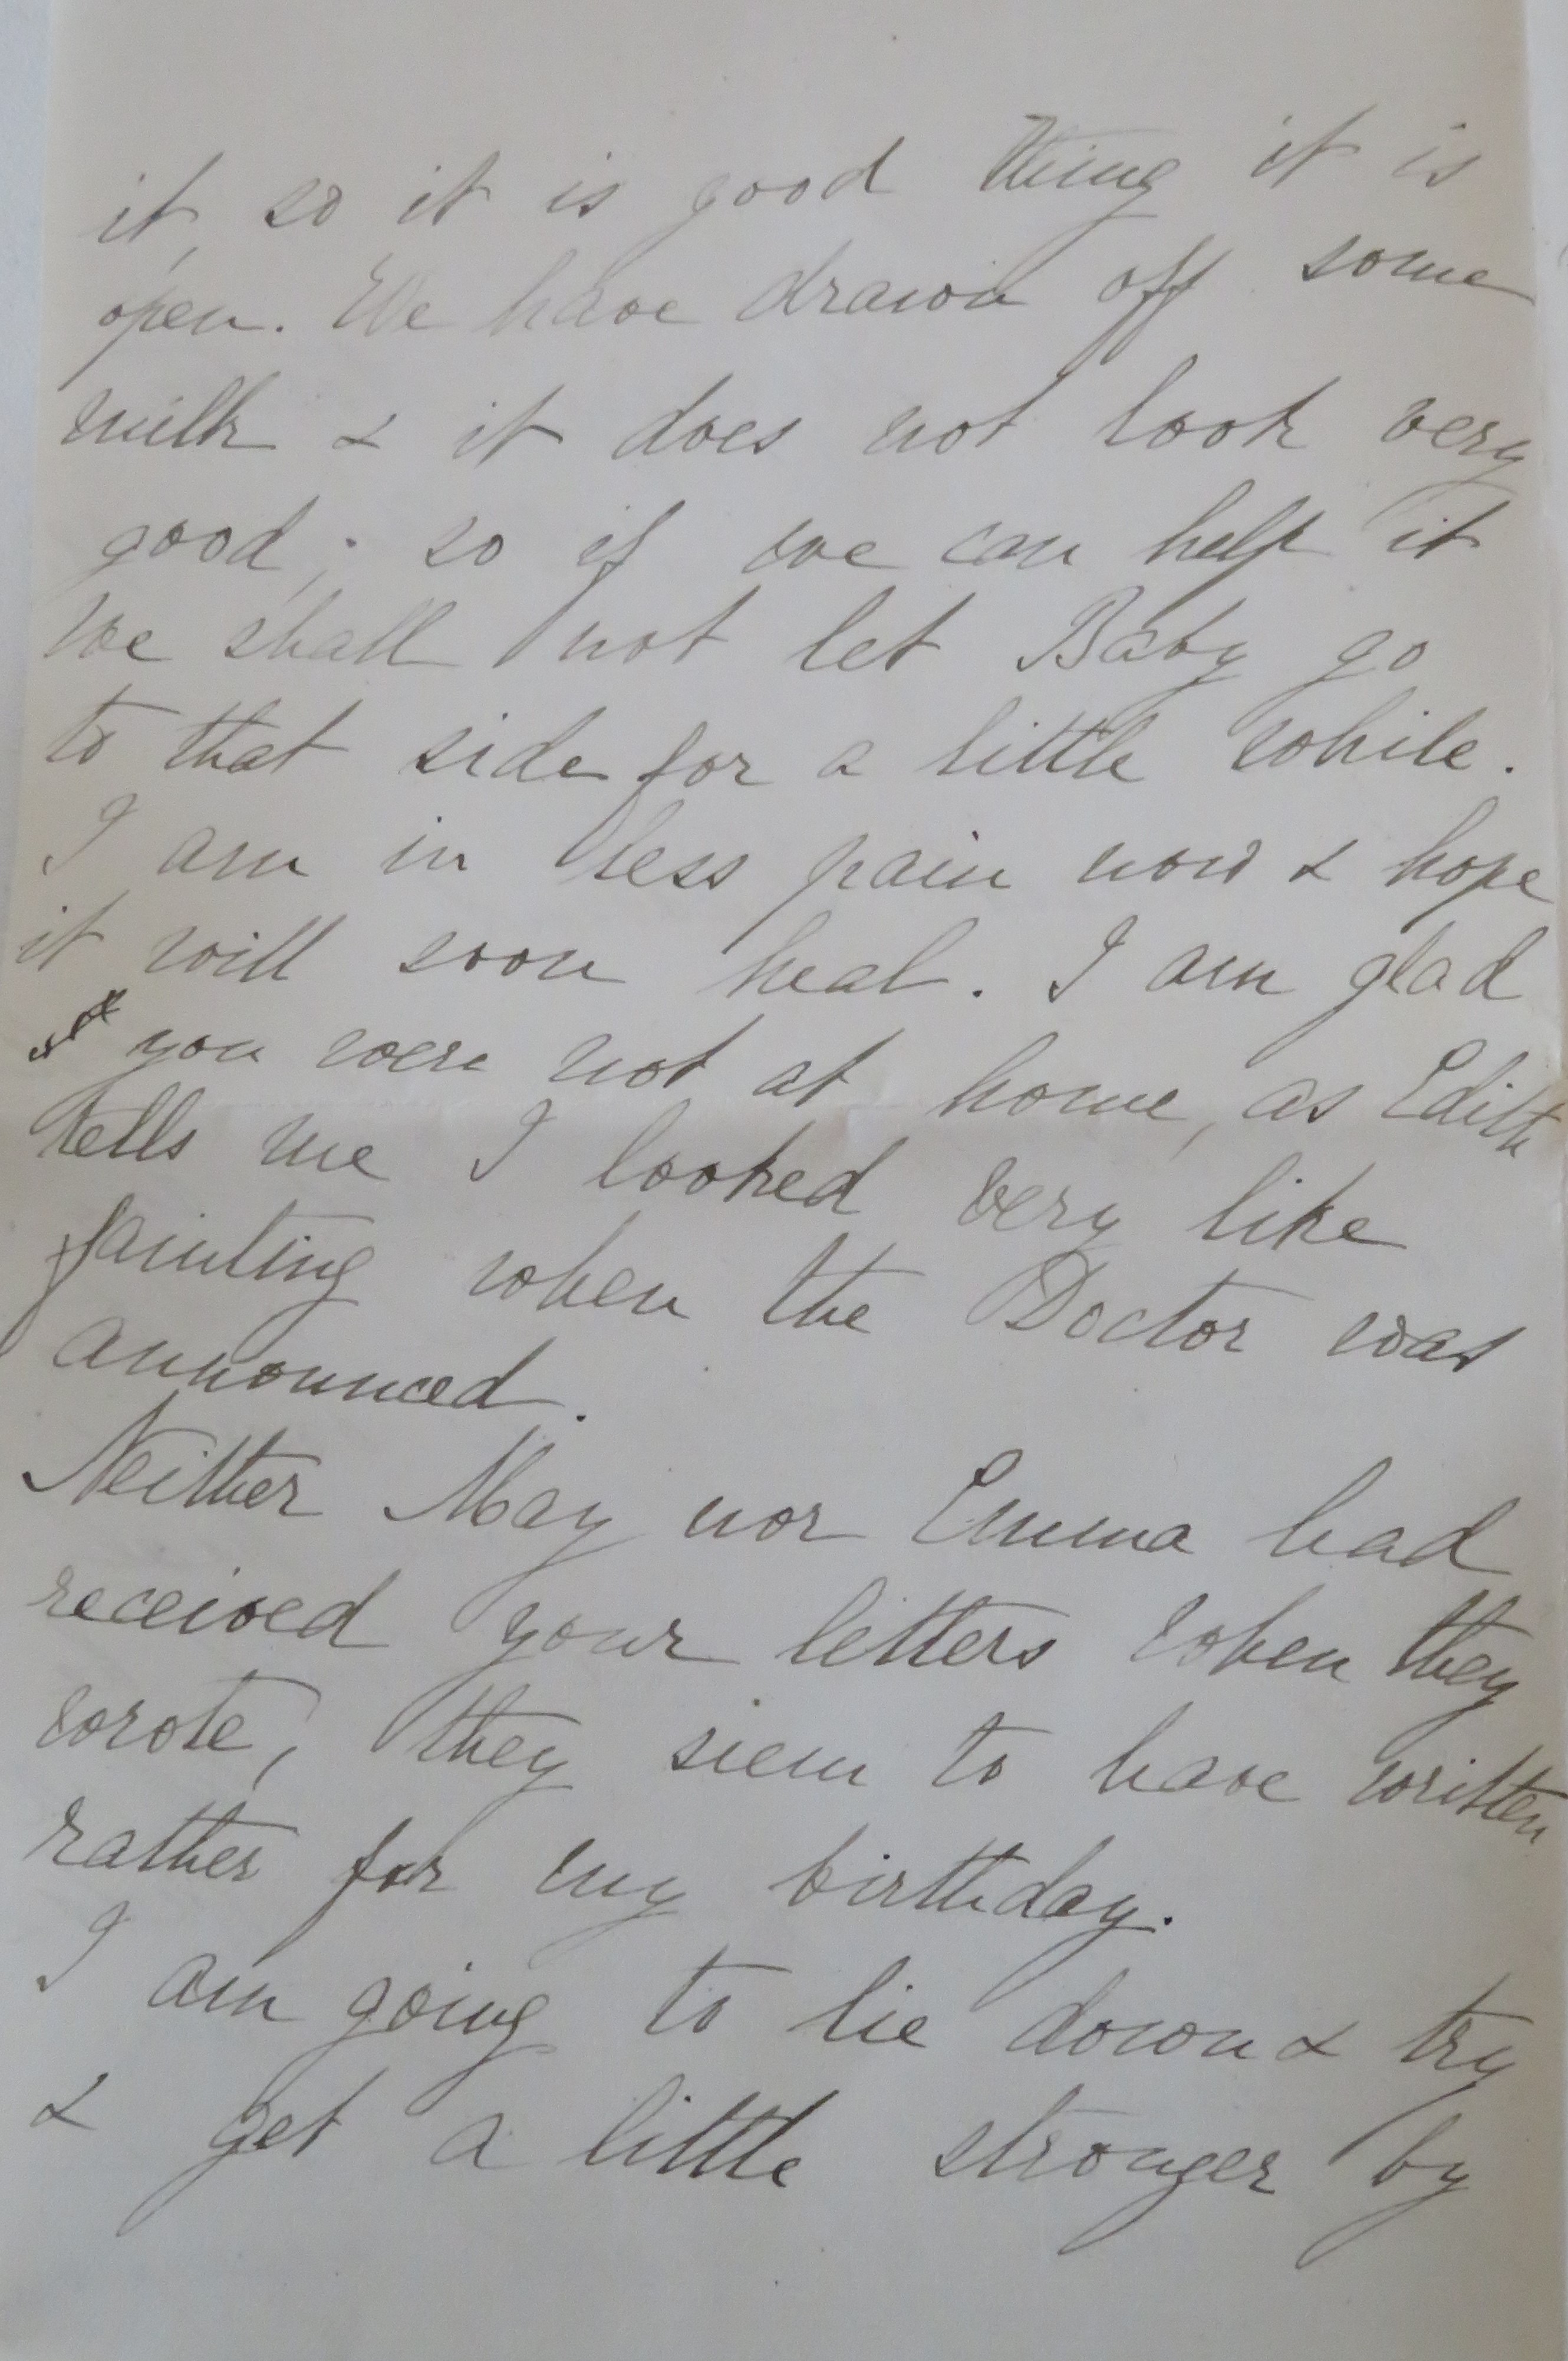 it, so it is good thing it is
open. We have drawn off some
milk & it does not look very
good; so if we can help it
we shall not let Baby go
to that side for a little while.
I am in less pain now & hope
it will soon heal. I am glad
you were not at home, as Edith
tells me I looked very like
fainting when the Doctor was
announced.
Neither May nor Emma had
received your letters when they
wrote, they seem to have written
rather for my birthday.
I am going to lie down & try
& get a little stronger by